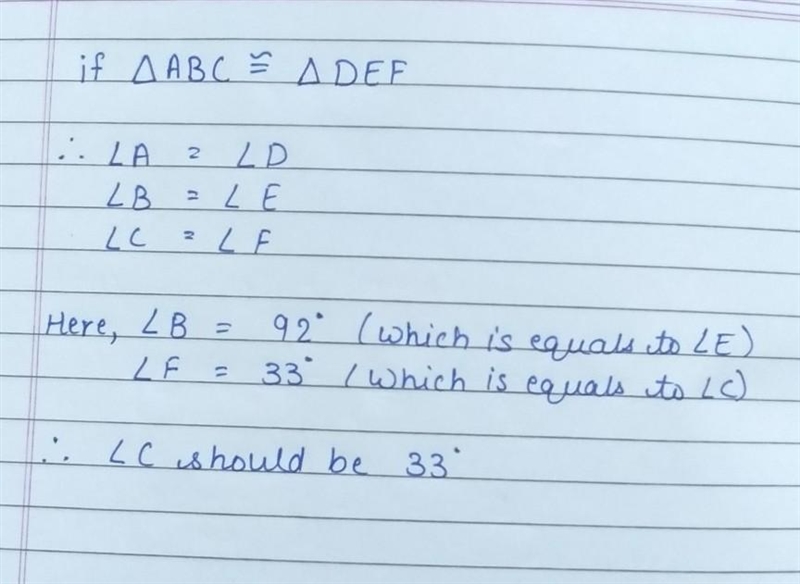 if △ABC ≅ △DEF
∴ ∠A = ∠D
∠B = ∠E
∠C = ∠F
Here, ∠B = 92° (which is equals to ∠E)
∠F = 33° (which is equals to ∠C)
∴ ∠C should be 33°